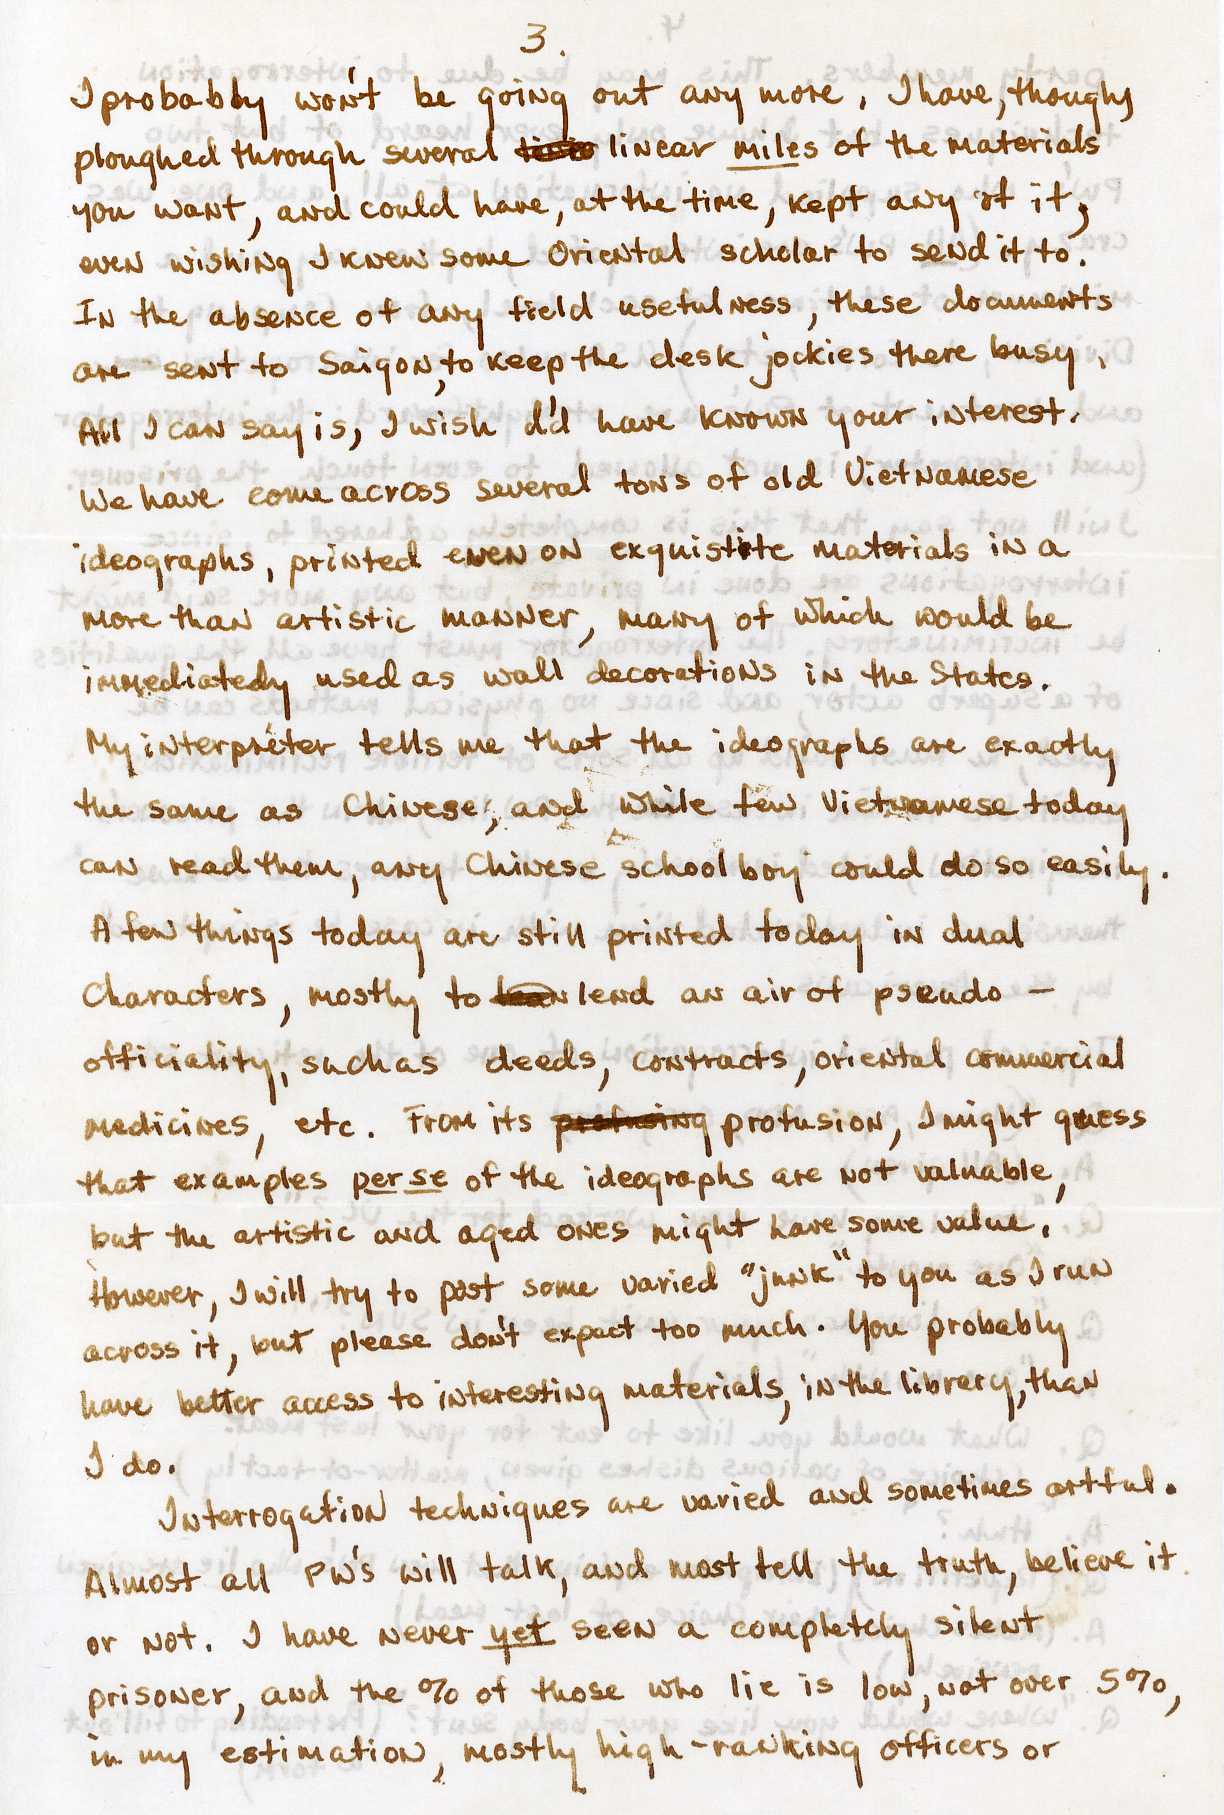 3.
I probably won't be going out any more. I have, though,
ploughed through several linear miles of the materials
you want, and could have, at the time, kept any of it,
even wishing I knew some Oriental scholar to send it to.
In the absence of any field usefulness, these documents
are sent to Saigon, to keep the desk jockies there busy.
All I can say is, I wish I'd have known your interest.
We have come across several tons of old Vietnamese
ideographs, printed even on exquistite materials in a
more than artistic manner, many of which would be
immediatedy used as wall decorations in the States.
My interpreter tells me that the ideographs are exactly
the same as Chinese, and while few Vietnamese today
can read them, any Chinese schoolboy could do so easily.
A few things today are still printed today in dual
Characters, mostly to lend an air of pseudo-
officiality, such as deeds, contracts, oriental commercial
medicines, etc. From its profusing profusion, I might guess
that examples per se of the ideographs are not valuable,
but the artistic and aged ones might have some value.
However, I will try to post some varied "junk" to you as I run
across it, but please don't expect too much. You probably
have better access to interesting materials, in the library, than
I do.
Interrogation techniques are varied and sometimes artful.
Almost all PW's will talk, and most tell the truth, believe it
or not. I have never yet seen a completely silent
prisoner, and the % of those who lie is low, not over 5%,
in my estimation, mostly high-ranking officers or